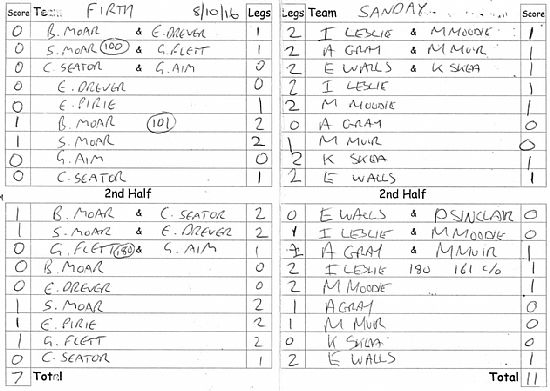 Score Team FIRTH 8/10/16 Legs Legs Team SANDAY Score
0 B. MOAR & E. DREVER 1 2 I LESLIE & M MOODIE 1
0 S. MOAR (100) & G. FLETT 1 2 A GRAY & M MUIR 1
0 C. SEATOR & G. AIM 0 2 E WALLS & K SKEA 1
0 E. DREVER 0 2 I LESLIE 1
0 E. PIRIE 1 2 M MOODIE 1
1 B. MOAR (101) 2 0 A GRAY 0
1 S. MOAR 2 1 M MUIR 0
0 G. AIM 0 2 K SKEA 1
0 C. SEATOR 1 2 E WALLS 1
2nd Half 2nd Half
1 B. MOAR & C. SEATOR 2 0 E WALLS & P SINCLAIR 0
1 S. MOAR & E. DREVER 2 1 I LESLIE & M MOODIE 0
0 G. FLETT (180) & G. AIM 1 A GRAY & M MUIR 1
0 B. MOAR 0 2 I LESLIE 180 161 c/o 1
0 E. DREVER 0 2 M MOODIE 1
1 S. MOAR 2 1 A GRAY 0
1 E. PIRIE 2 1 M MUIR 0
1 G. FLETT 2 0 K SKEA 0
0 C. SEATOR 1 2 E WALLS 1
7 Total Total 11